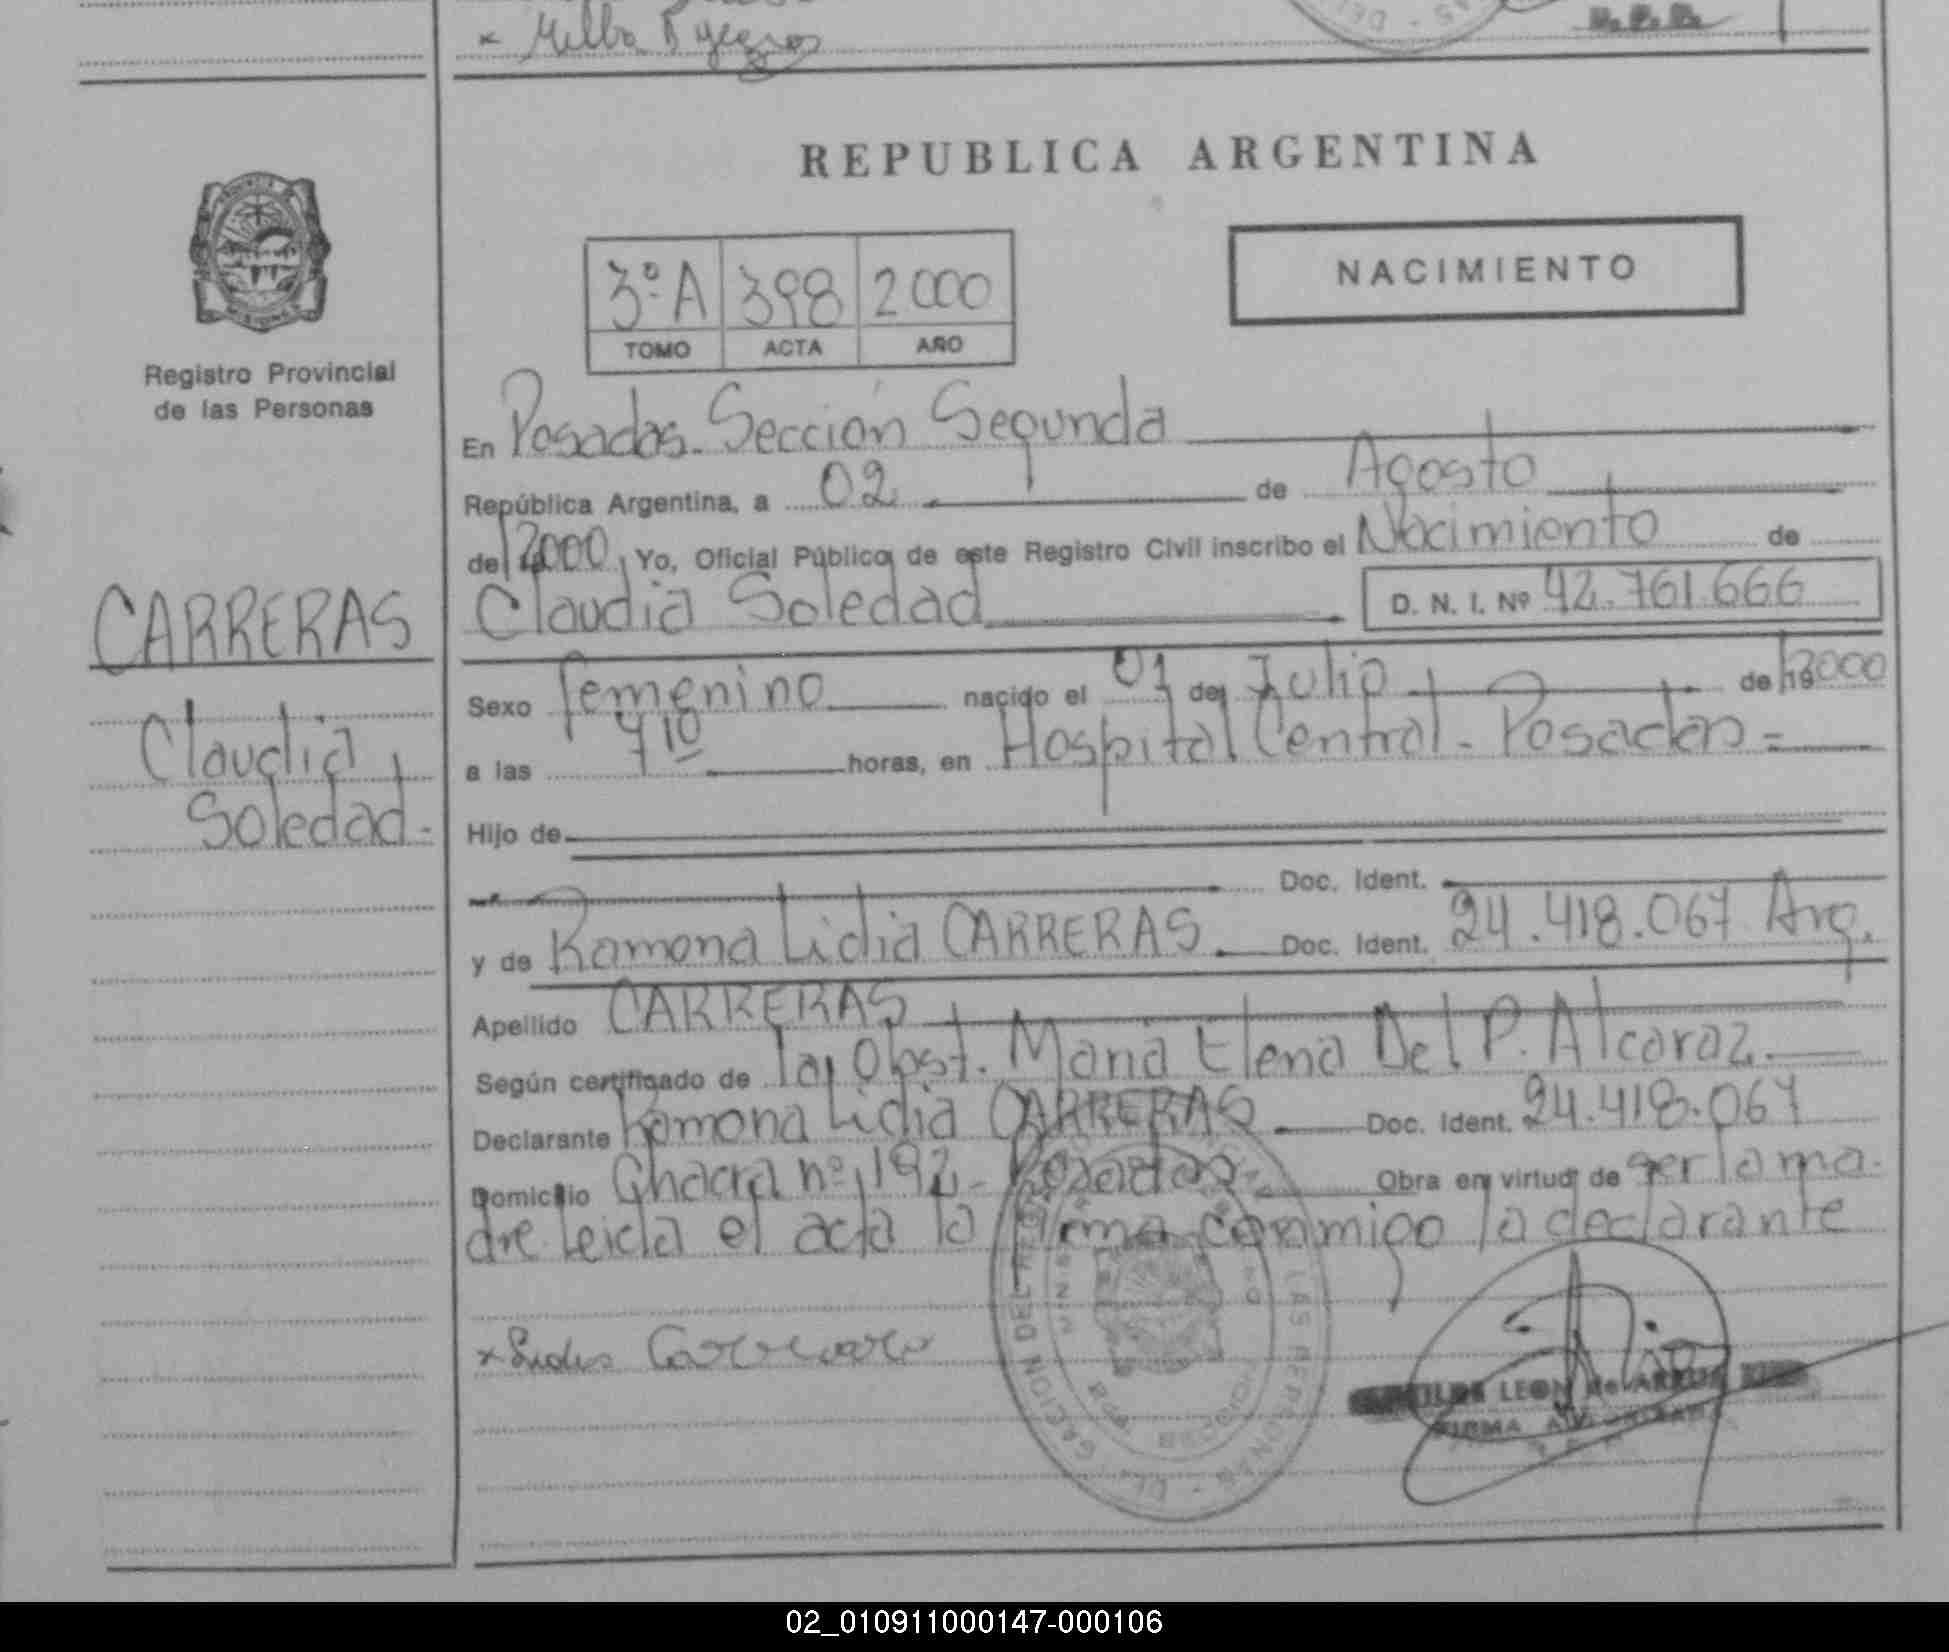 REPUBLICA ARGENTINA
NACIMIENTO
3º A 398 2000
TOMO ACTA AÑO
Registro Provincial
de las Personas
En Posadas. Sección Segunda
República Argentina, a 02 de Agosto
de 2000, Yo, Oficial Público de este Registro Civil inscribo el Nacimiento de
Claudia Soledad D. N. I. Nº 42.761.666
CARRERAS
Claudia
Soledad.-
Sexo femenino nacido el 01 de Julio de 2000
a las 7 10 horas, en Hospital Central - Posadas =
Hijo de
Doc. Ident.
y de Ramona Lidia CARRERAS. Doc. Ident. 24.418.067 Arg.
Apellido CARRERAS
Según certificado de la Obst. Maria Elena Del P. Alcaraz.
Declarante Ramona Lidia CARRERAS. Doc. Ident. 24.418.067
Domicilio Chacra nº 192 - Posadas Obra en virtud de ser la ma-
dre. leida el acta la firma conmigo la declarante
x
LEON de
FIRMA
DEL LAS PERSONAS
02_010911000147-000106